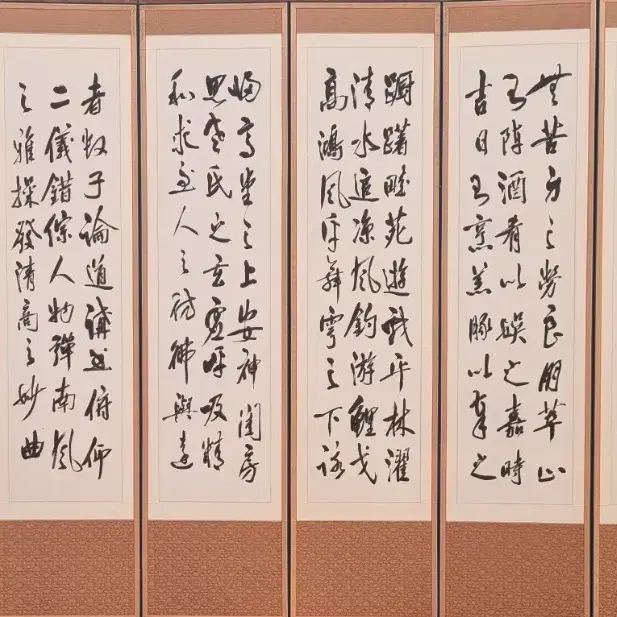 無苦身之勞良朋萃止
則陳酒肴以娛之嘉時
吉日則烹羔豚以奉之
躕躇畦苑遊戲平林濯
清水追涼風釣游鯉弋
高鴻風乎舞雩之下詠
歸高堂之上安神閨房
思老氏之玄虛呼吸精
和求至人之彷彿與達
者數子論道講書俯仰
二儀錯綜人物彈南風
之雅操發清商之妙曲